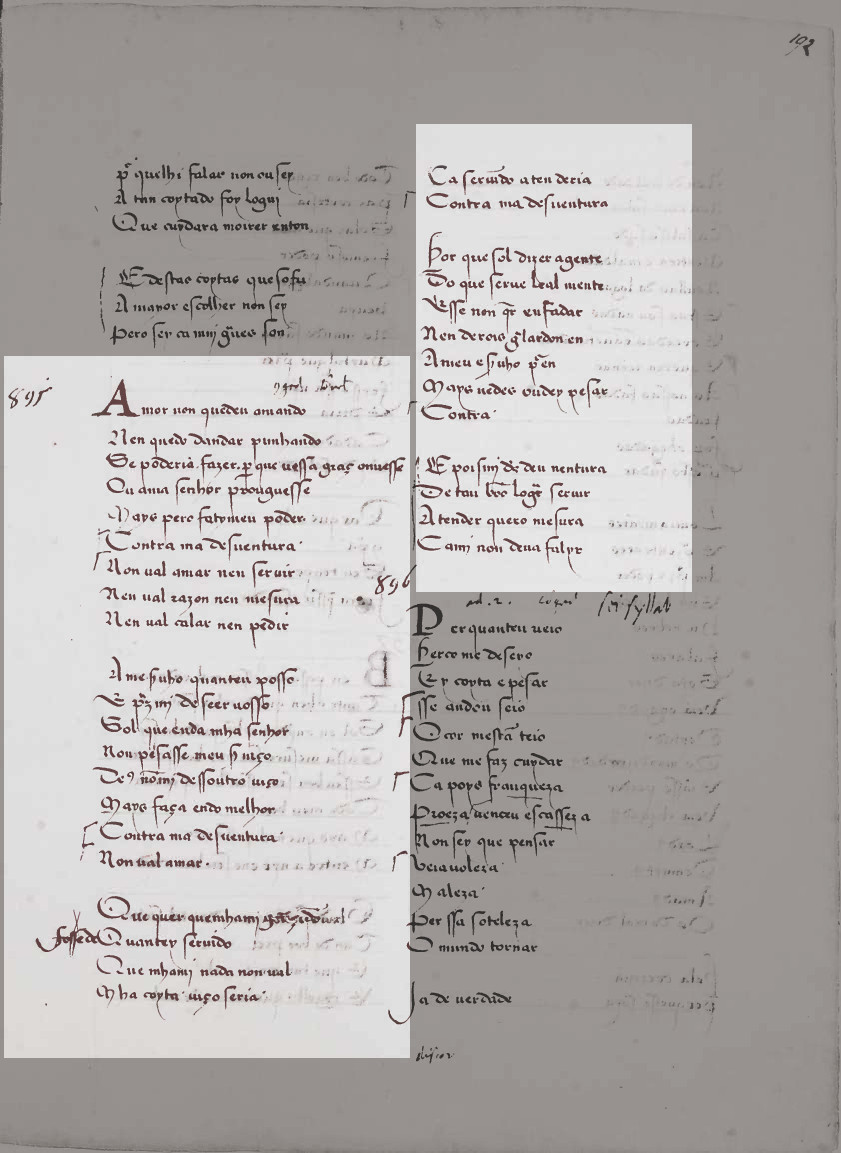 192
p̃ quelhi falar non ousey
A tan coytado foy logui
Que cuydara moirer enton
E destas coytas que sofri
A mayor escolher non sey
Pero sey ca mui g̃ues son
895
Amor non quedeu amando
Nen quedo dandar punhando
Se poderia fazer per que uessa graç ouuesse
Ou a ma senhor prouguesse
Mays pero faço meu poder
Contra ma desuentura
Non ual amar nen seruir
Nen ual razon nen mesura
Nen ual calar nen pedir
Ame suho quanteu posso
E p̃z mi de seer uosso
Sol que enda mha senhor
Non pesasse meu suiço
De9 nõmi des soutro uiço
Mays faça endo melhor
Contra ma desuentura
Non ual amar
Que quer que mhami
fosse de Quantey seruido
Que mhami nada non ual
Mha coyta uiço seria
Ca seruido atenderia
Contra ma desuentura
Por que sol dizer a gente
Do que serue leal mente
Esse non q̃r enfadar
Nen de rois g̃lardon en
A meu e suho p̃en
Mays uedes ondey pesar
Contra
E pois mi ds deu uentura
De tau bõo logr̃ seruir
Atender quero mesura
Ca mi non deua falyr
896
ad. 2.
Per quanteu ueio
Perco me deseio
Ey coyta e pesar
Sse andou seio
O cor mestã teio
Que me faz cuydar
Ca poys franqueza
Proeza uenceu escasseza
Non sey que pensar
Veia uoleza
Maleza
Per ssa soteleza
O mundo tornar
Ja de uerdade